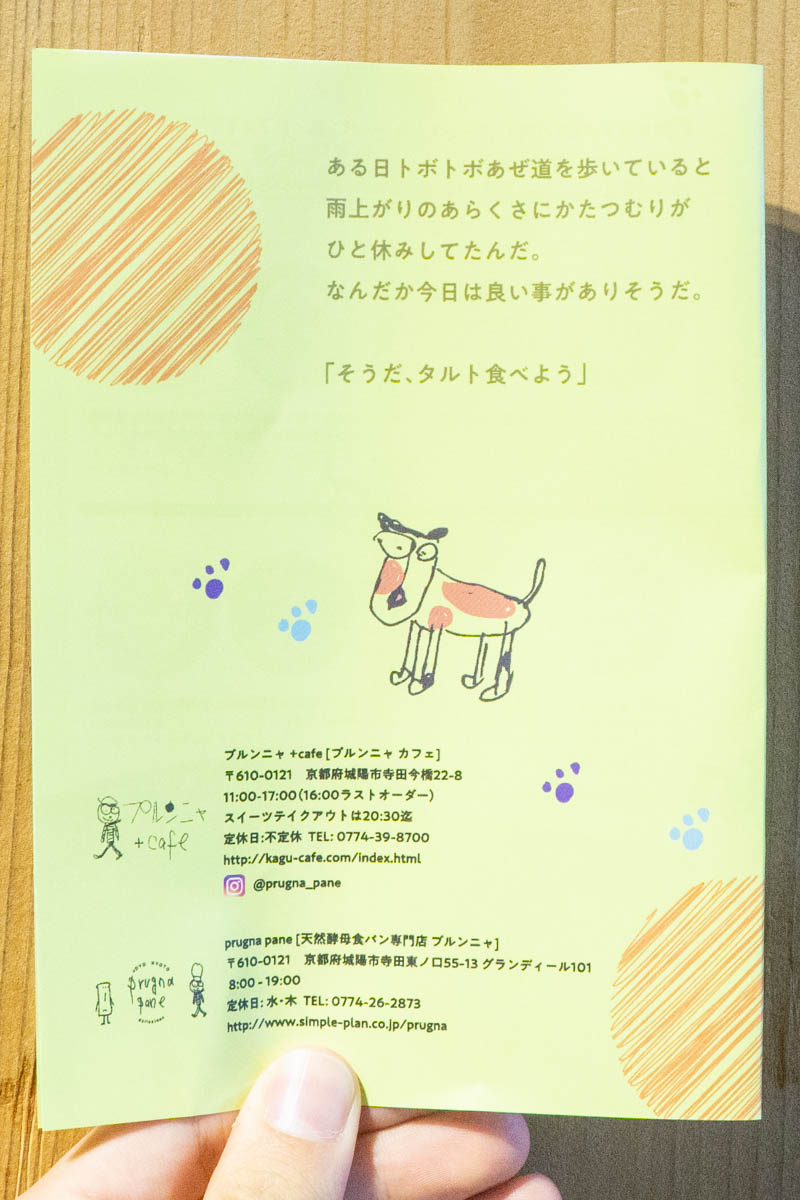 ある日トボトボあぜ道を歩いていると
雨上がりのあらくさにかたつむりが
ひと休みしてたんだ。
なんだか今日は良い事がありそうだ。
「そうだ、タルト食べよう」
プルンニャ +cafe [プルンニャ カフェ]
〒610-0121 京都府城陽市寺田今橋22-8
11:00-17:00(16:00ラストオーダー)
スイーツテイクアウトは20:30迄
定休日:不定休 TEL: 0774-39-8700
http://kagu-cafe.com/index.html
@prugna_pane
プルンニャ
+cafe
prugna pane [天然酵母食パン専門店 プルンニャ]
〒610-0121 京都府城陽市寺田東ノ口55-13 グランディール101
8:00 - 19:00
定休日: 水・木 TEL: 0774-26-2873
http://www.simple-plan.co.jp/prugna
prugna
pane